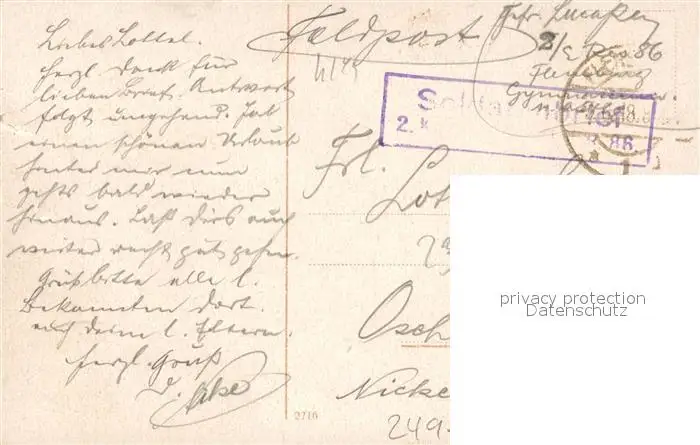 Liebes Lottel.
Herzl. Dank für
lieben Brief. Antwort
folgt umgehend. Hab
einen schönen Urlaub
hinter mir nun
gehts bald wieder
hinaus. Laß dirs auch
weiter recht gut gehn.
Grüß bitte alle l.
Bekannten dort.
auch deine l. Eltern.
herzl. Gruß
Feldpost
Gefr.
2/E Res 86
Flensburg
Gymnasium
2. K
86
Frl. Lot
Osch
Nicke
249
2716
privacy protection
Datenschutz